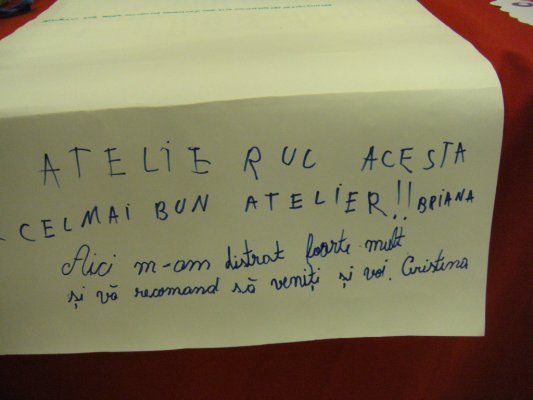 ATELIERUL ACESTA
CELMAI BUN ATELIER!! BRIANA
Aici m-am distrat foarte mult
și vă recomand să veniți și voi. Cristina